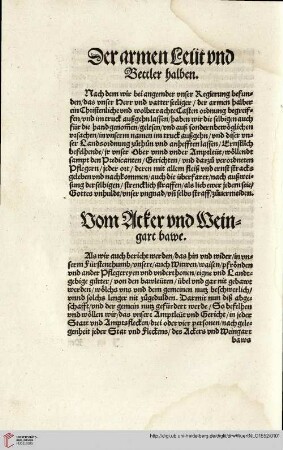 Der armen Leüt vnd
Bettler halben.
Nach dem wir bei angender vnser Regierung befun-
den, das vnser Herr vnd vatter seeliger / der armen halber
ein Christenliche vnd wolbetrachte Casten ordnung begreif-
fen / vnd im truck außgehn lassen / haben wir die selbigen auch
für die hand genomen / gelesen / vnd auß sondern beweglichen
vrsachen / in vnserm namen im truck außgehn / vnd diser vn-
ser Landsordnung zůthůn vnd anhefften lassen / Ernstlich
befelhende / jr vnser Ober vnnd vnder Amptleüt / wöllend
sampt den Predicanten / Gerichten / vnd darzů verordneten
Pflegern / jeder ort / deren mit allem fleiß vnd ernst stracks
geleben vnd nachkommen / auch die überfarer / nach außwei-
sung der selbigen / strencklich straffen / als lieb ewer jedem seie /
Gottes vnhulde / vnser vngnad / vñ selbs straff / zůuermeiden.
Vom Acker vnd Wein-
gart bawe.
Als wir auch bericht werden / das hin vnd wider / in vn-
serm Fürstenthumb / vnsere / auch Witwen / waisen / pfrönden
vnd ander Pflegereyen vnd vnderthonen / eigne vnd Land-
gebige gůter / von den bawleüten / übel vnd gar nit gebawt
werden / wölchs vns vnd dem gemeinen nutz beschwerlich /
vnnd solchs lenger nit zůgedulden. Darmit nun diß abge-
schafft / vnd der gemein nutz gefürdert werde / So befelhen
vnd wöllen wir / das vnsere Amptleüt vnd Gericht / in jeder
Statt vnd Amptsflecken / drei oder vier personen / nach gele-
genheit jeder Statt vnd Fleckens / des Ackers vnd Weingart
baws